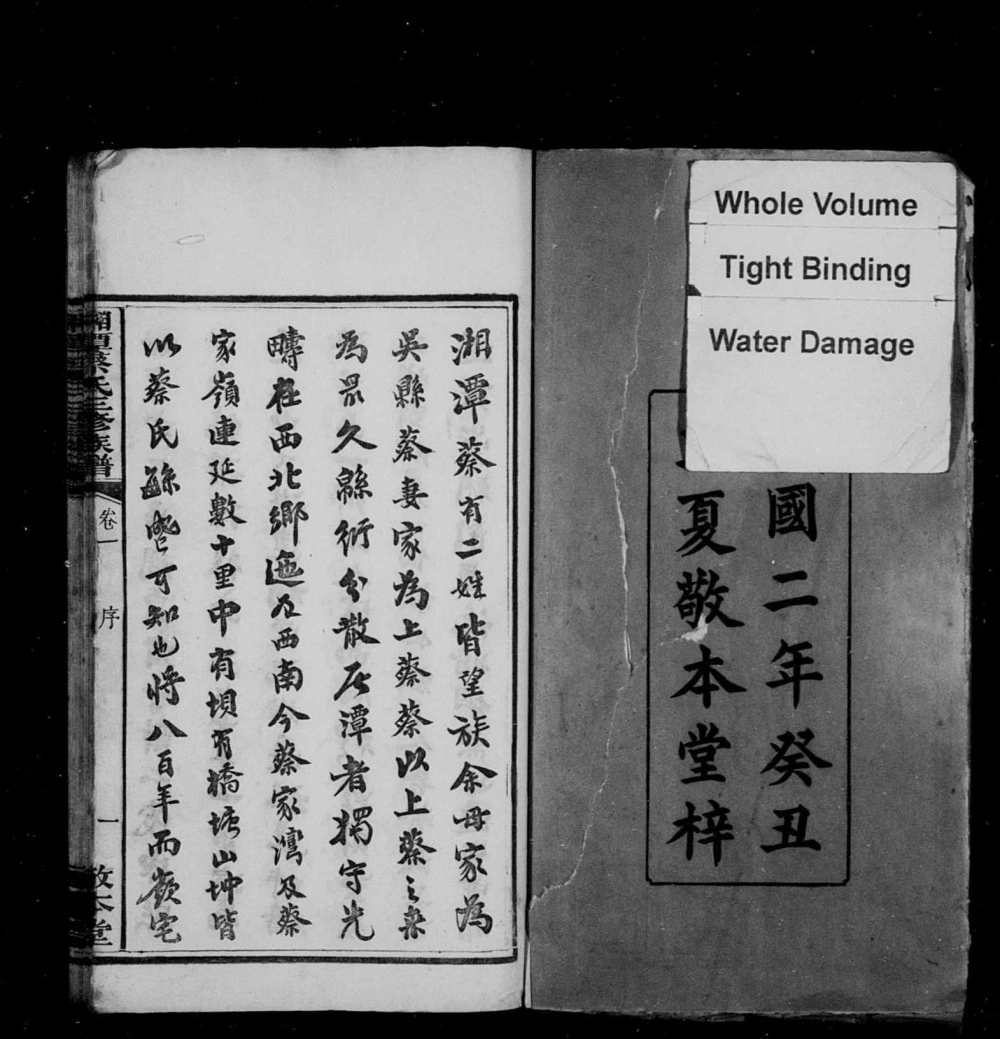 Whole Volume
Tight Binding
Water Damage
國二年癸丑
夏敬本堂梓
湘潭蔡有二姓皆望族余母家為
吳縣蔡妻家為上蔡蔡以上蔡之來
為最久緜衍分散居潭者獨守先
疇在西北鄉迤及西南今蔡家灣及蔡
家嶺連延數十里中有垻有橋塘山坤皆
以蔡氏繇啻可知也將八百年而嶺宅
湘潭蔡氏三修族譜
卷一
序
一
敬本堂